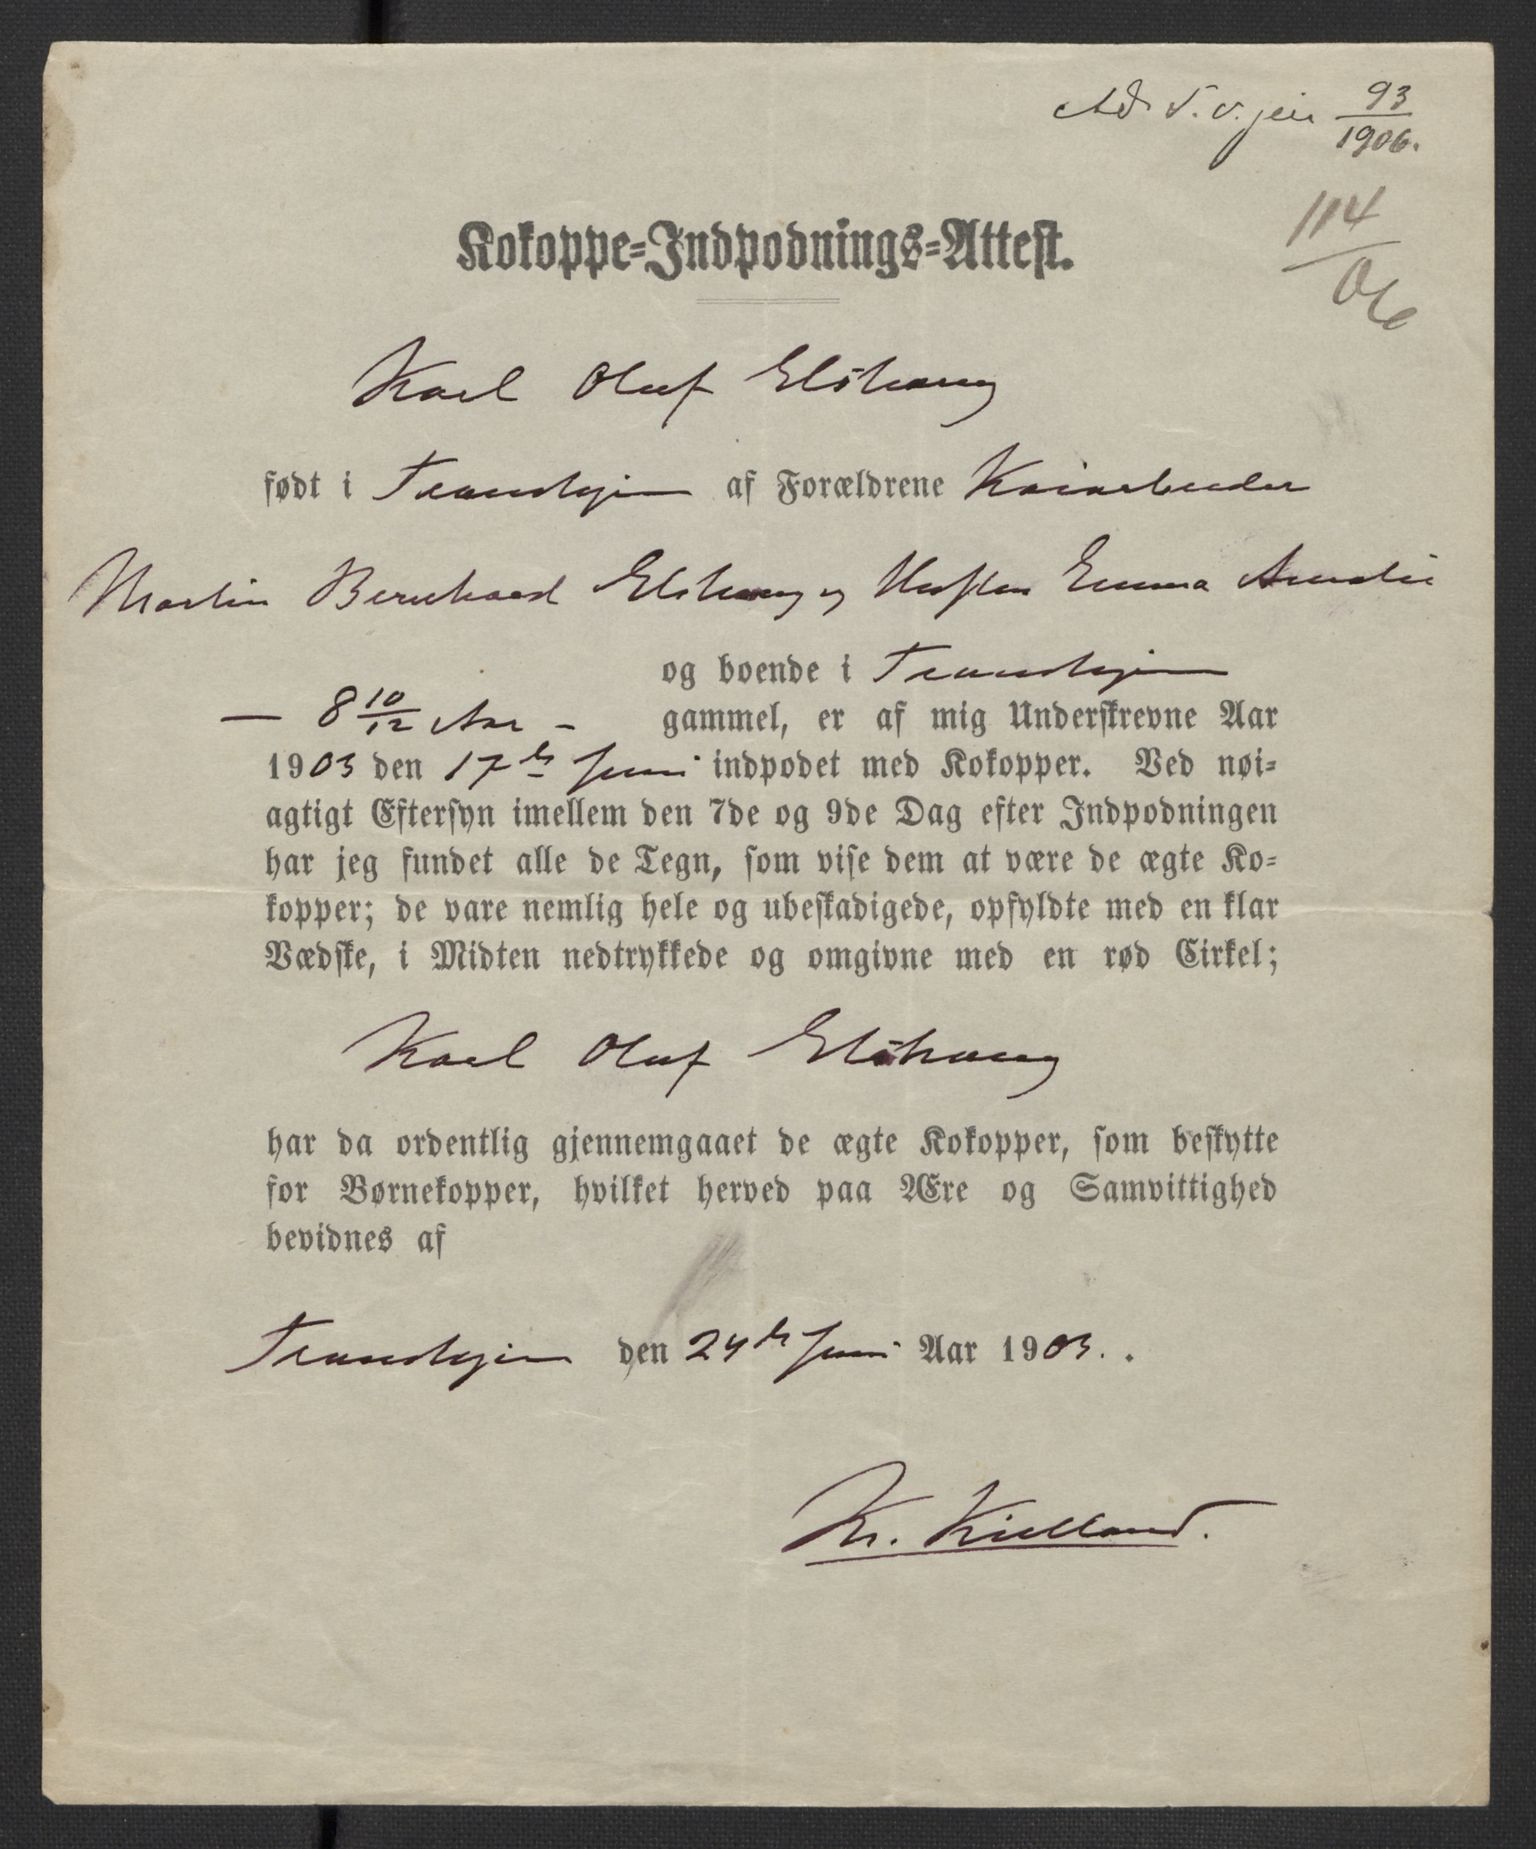 93
1906.
114
06
Kokoppe-Indpodnings-Attest.
Karl Oluf Elshaug
født i Trondhjem af Forældrene Kaiarbeider
Martin Bernhard Elshaug og Hustru Emma Amalie
og boende i Trondhjem
— 8 10/12 Aar — gammel, er af mig Underskrevne Aar
1903 den 17de Juni indpodet med Kokopper. Ved nøi-
agtigt Eftersyn imellem den 7de og 9de Dag efter Indpodningen
har jeg fundet alle de Tegn, som vise dem at være de ægte Ko-
kopper; de vare nemlig hele og ubeskadigede, opfyldte med en klar
Vædske, i Midten nedtrykkede og omgivne med en rød Cirkel;
Karl Oluf Elshaug
har da ordentlig gjennemgaaet de ægte Kokopper, som beskytte
for Børnekopper, hvilket herved paa Ære og Samvittighed
bevidnes af
Trondhjem den 24de Juni Aar 1903.
Kr. Kielland.